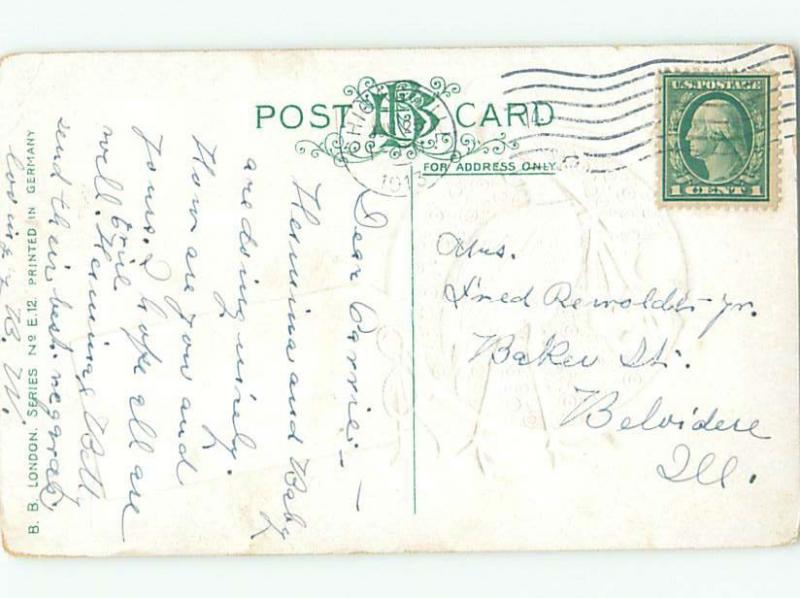 POST CARD
BB
FOR ADDRESS ONLY
1913
U.S. POSTAGE
1 CENT 1
B. B. LONDON. SERIES No E.12. PRINTED IN GERMANY
Dear Carrie:—
Hermina and Baby
are doing nicely.
How are you and
yours. I hope all are
well. Hermina, Bell
send their best regards,
loving M.
Mrs.
Fred Rewoldt Jr.
Baker St.
Belvidere
Ill.